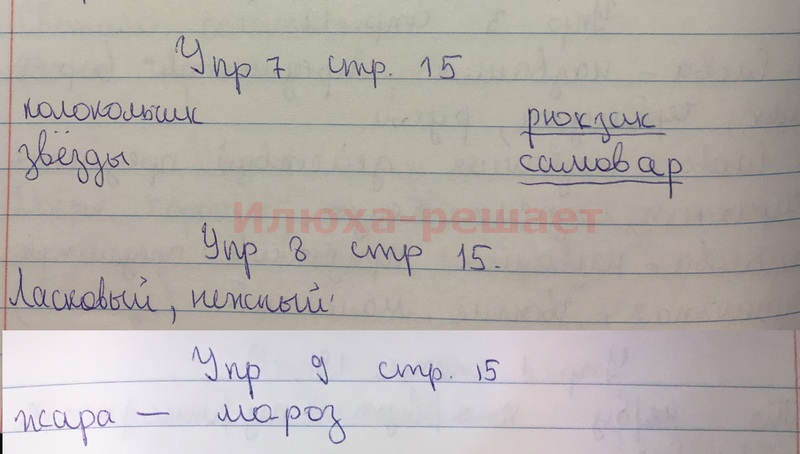 Упр 7 стр. 15
колокольчик рюкзак
звёзды самовар
Илюха-решает
Упр 8 стр 15.
Ласковый, нежный
Упр 9 стр. 15
жара — мороз